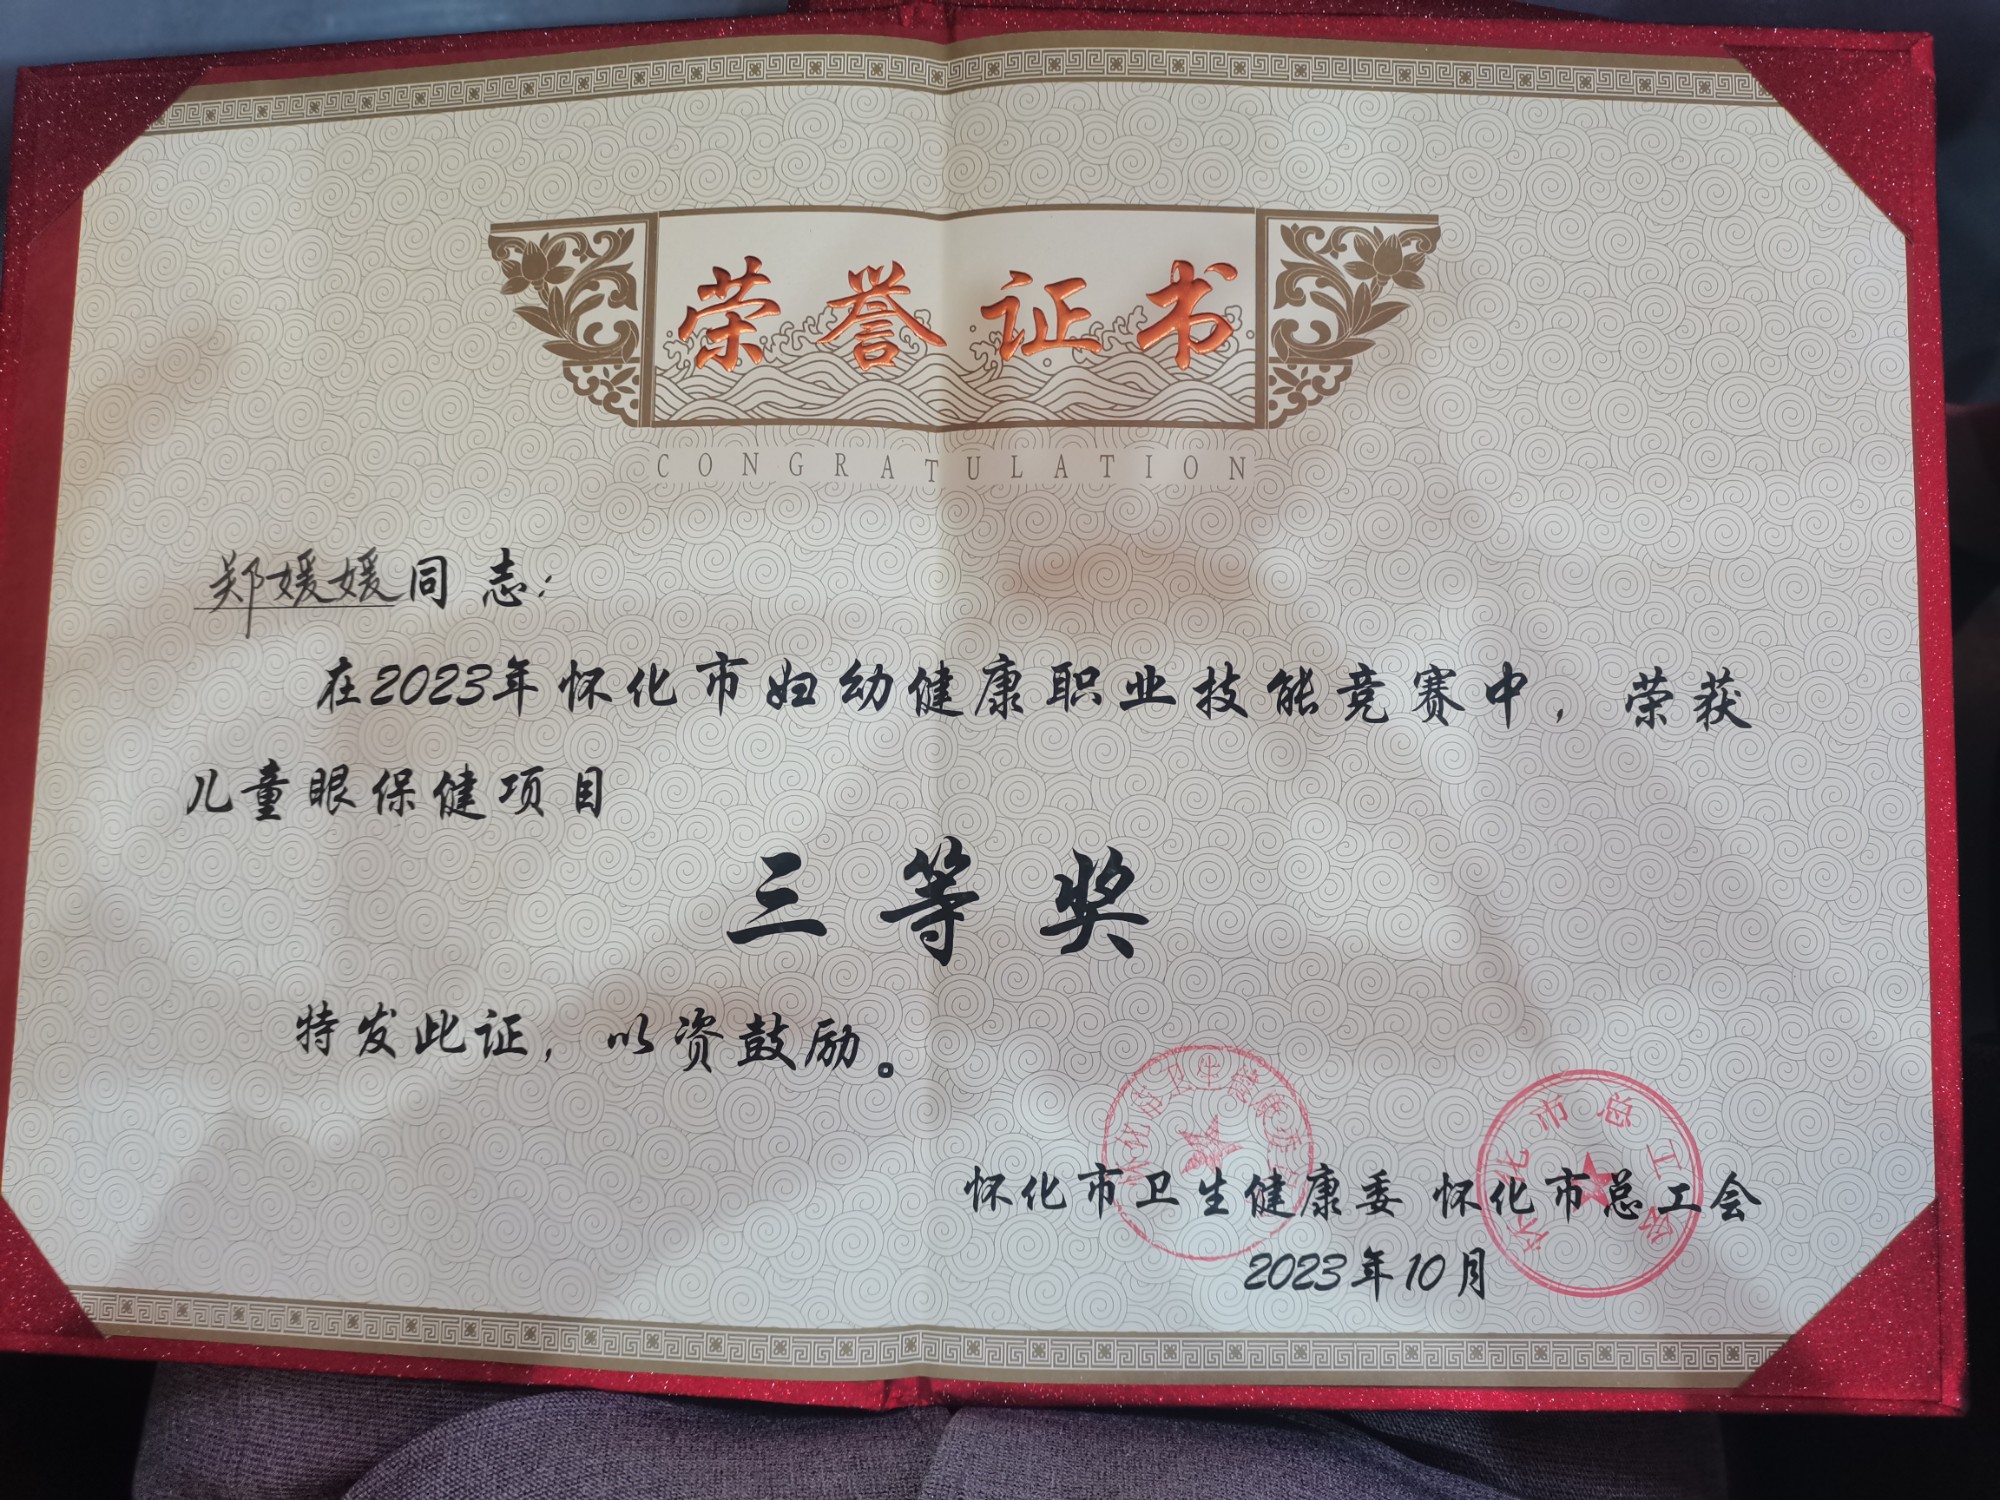 荣誉证书
CONGRATULATION
郑媛媛同志:
在2023年怀化市妇幼健康职业技能竞赛中，荣获
儿童眼保健项目
三等奖
特发此证，以资鼓励。
怀化市卫生健康委 怀化市总工会
2023年10月
怀化市卫生健康委员会
怀化市总工会